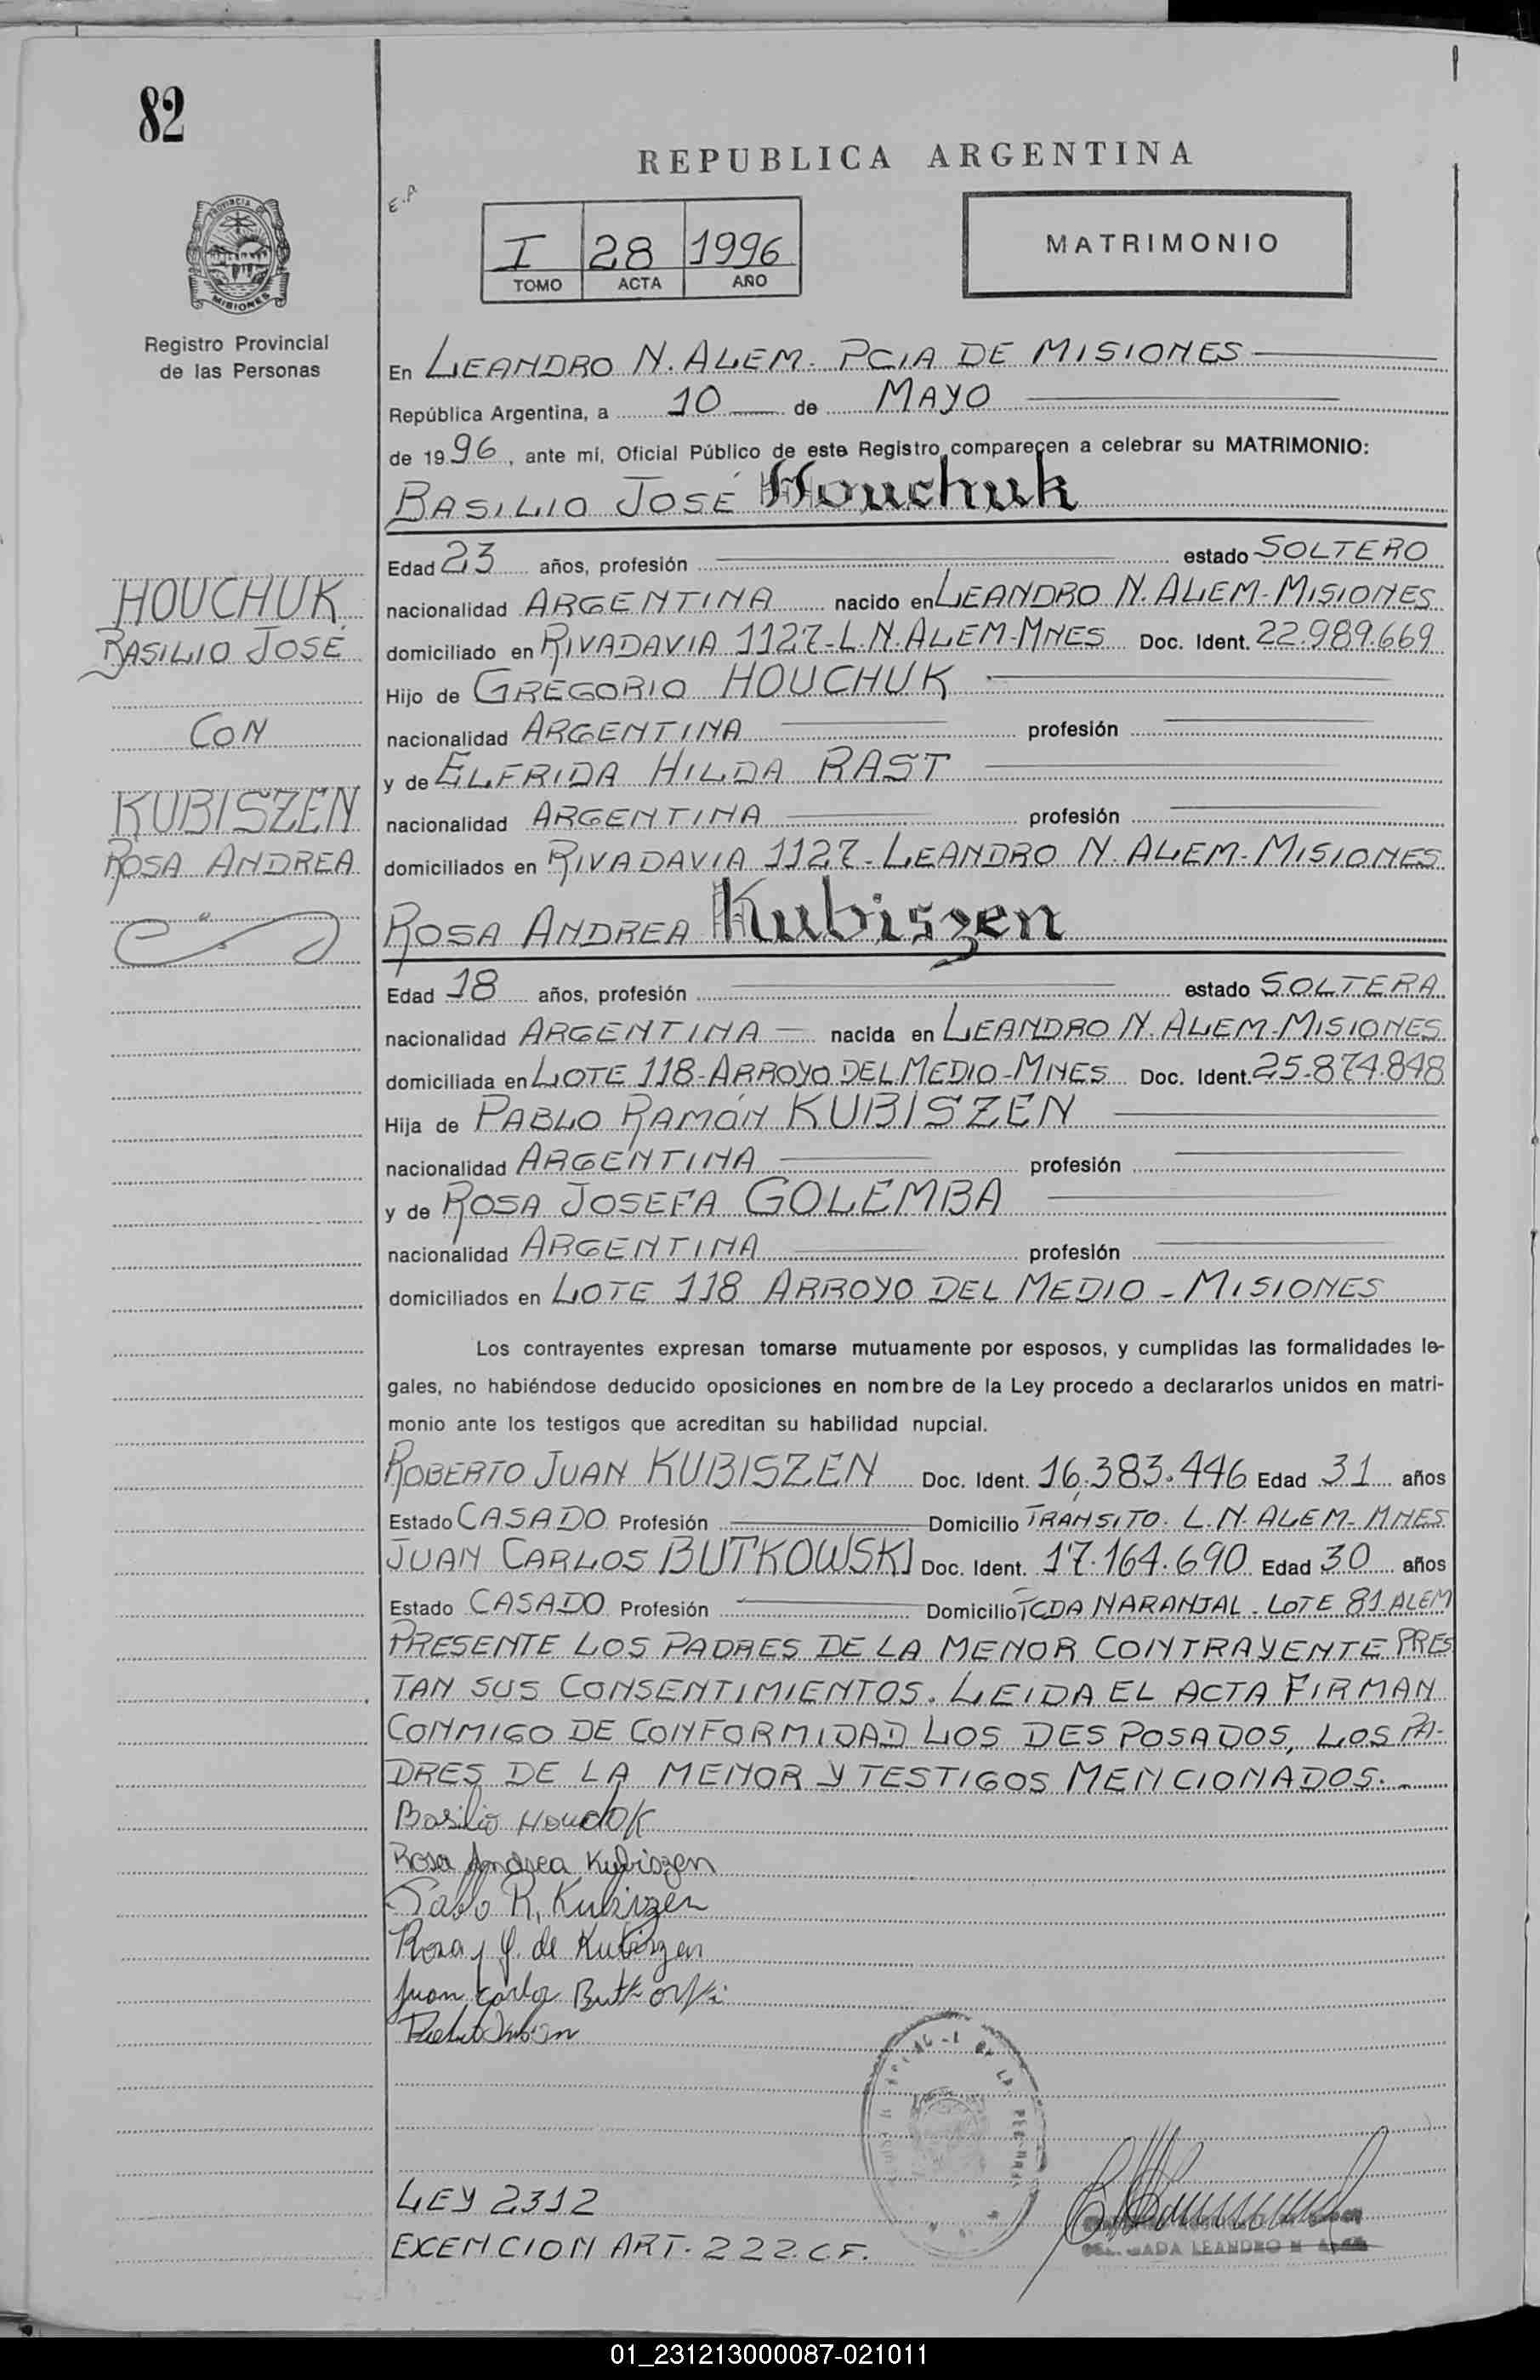 82
REPUBLICA ARGENTINA
E.P
I 28 1996
TOMO ACTA AÑO
MATRIMONIO
PROVINCIA DE
MISIONES
Registro Provincial
de las Personas
En LEANDRO N. ALEM. PCIA DE MISIONES
República Argentina, a 10 de MAYO
de 1996, ante mí, Oficial Público de este Registro comparecen a celebrar su MATRIMONIO:
BASILIO JOSÉ Houchuk
Edad 23 años, profesión estado SOLTERO
nacionalidad ARGENTINA nacido en LEANDRO N. ALEM-MISIONES
domiciliado en RIVADAVIA 1127-L.N.ALEM-MNES Doc. Ident. 22.989.669
Hijo de GREGORIO HOUCHUK
nacionalidad ARGENTINA profesión
y de ELFRIDA HILDA RAST
nacionalidad ARGENTINA profesión
domiciliados en RIVADAVIA 1127-LEANDRO N. ALEM-MISIONES
HOUCHUK
BASILIO JOSÉ
CON
KUBISZEN
ROSA ANDREA
ROSA ANDREA Kubiszen
Edad 18 años, profesión estado SOLTERA
nacionalidad ARGENTINA nacida en LEANDRO N. ALEM-MISIONES
domiciliada en LOTE 118-ARROYO DEL MEDIO-MNES Doc. Ident. 25.874.848
Hija de PABLO RAMÓN KUBISZEN
nacionalidad ARGENTINA profesión
y de ROSA JOSEFA GOLEMBA
nacionalidad ARGENTINA profesión
domiciliados en LOTE 118 ARROYO DEL MEDIO - MISIONES
Los contrayentes expresan tomarse mutuamente por esposos, y cumplidas las formalidades le-
gales, no habiéndose deducido oposiciones en nombre de la Ley procedo a declararlos unidos en matri-
monio ante los testigos que acreditan su habilidad nupcial.
ROBERTO JUAN KUBISZEN Doc. Ident. 16.383.446 Edad 31 años
Estado CASADO Profesión Domicilio TRANSITO. L.N. ALEM-MNES
JUAN CARLOS BUTKOWSKI Doc. Ident. 17.164.690 Edad 30 años
Estado CASADO Profesión Domicilio TCDA NARANJAL. LOTE 81 ALEM
PRESENTE LOS PADRES DE LA MENOR CONTRAYENTE PRES
TAN SUS CONSENTIMIENTOS. LEIDA EL ACTA FIRMAN
CONMIGO DE CONFORMIDAD LOS DESPOSADOS, LOS PA-
DRES DE LA MENOR Y TESTIGOS MENCIONADOS.
Basilio Houchuk
Rosa Andrea Kubiszen
Pablo R. Kubiszen
Rosa J. G. de Kubiszen
Juan Carlos Butkoski
LEY 2312
EXENCION ART. 222.C.F.
LEANDRO N. ALEM
01_231213000087-021011